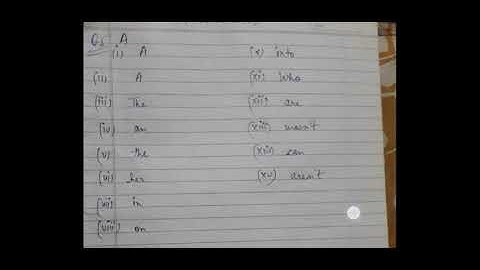 Q5 A
(i) A
(ii) A
(iii) The
(iv) an
(v) the
(vi) her
(vii) in
(viii) on
(x) into
(xi) Who
(xii) are
(xiii) wasn't
(xiv) can
(xv) aren't